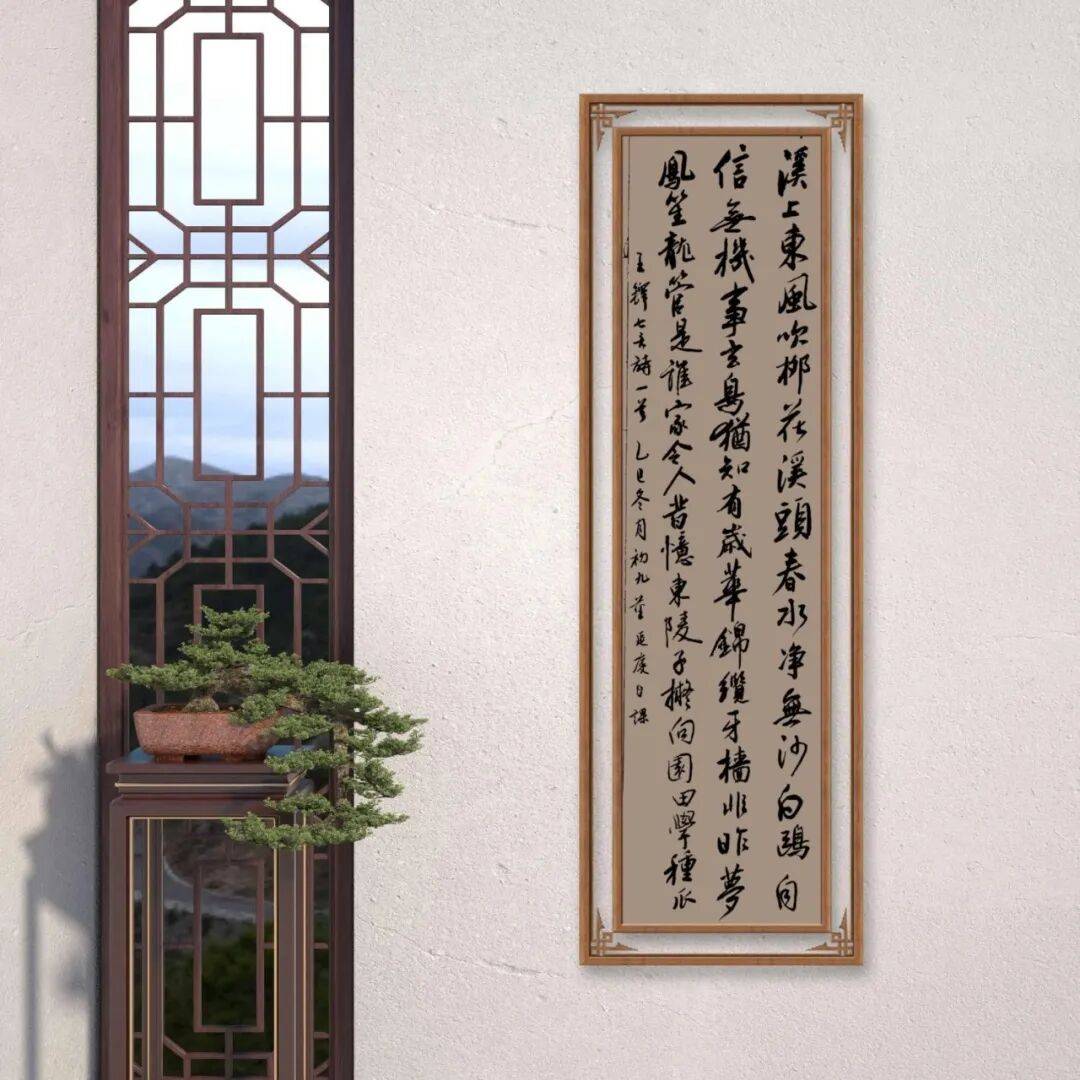 溪上東風吹柳花溪頭春水净無沙白鷗自
信無機事玄鳥猶知有歲華錦纜牙檣非昨夢
鳳笙龍管是誰家令人苦憶東陵子擬向園田學種瓜
王鐸七言詩一首 乙巳冬月初九董延慶日課